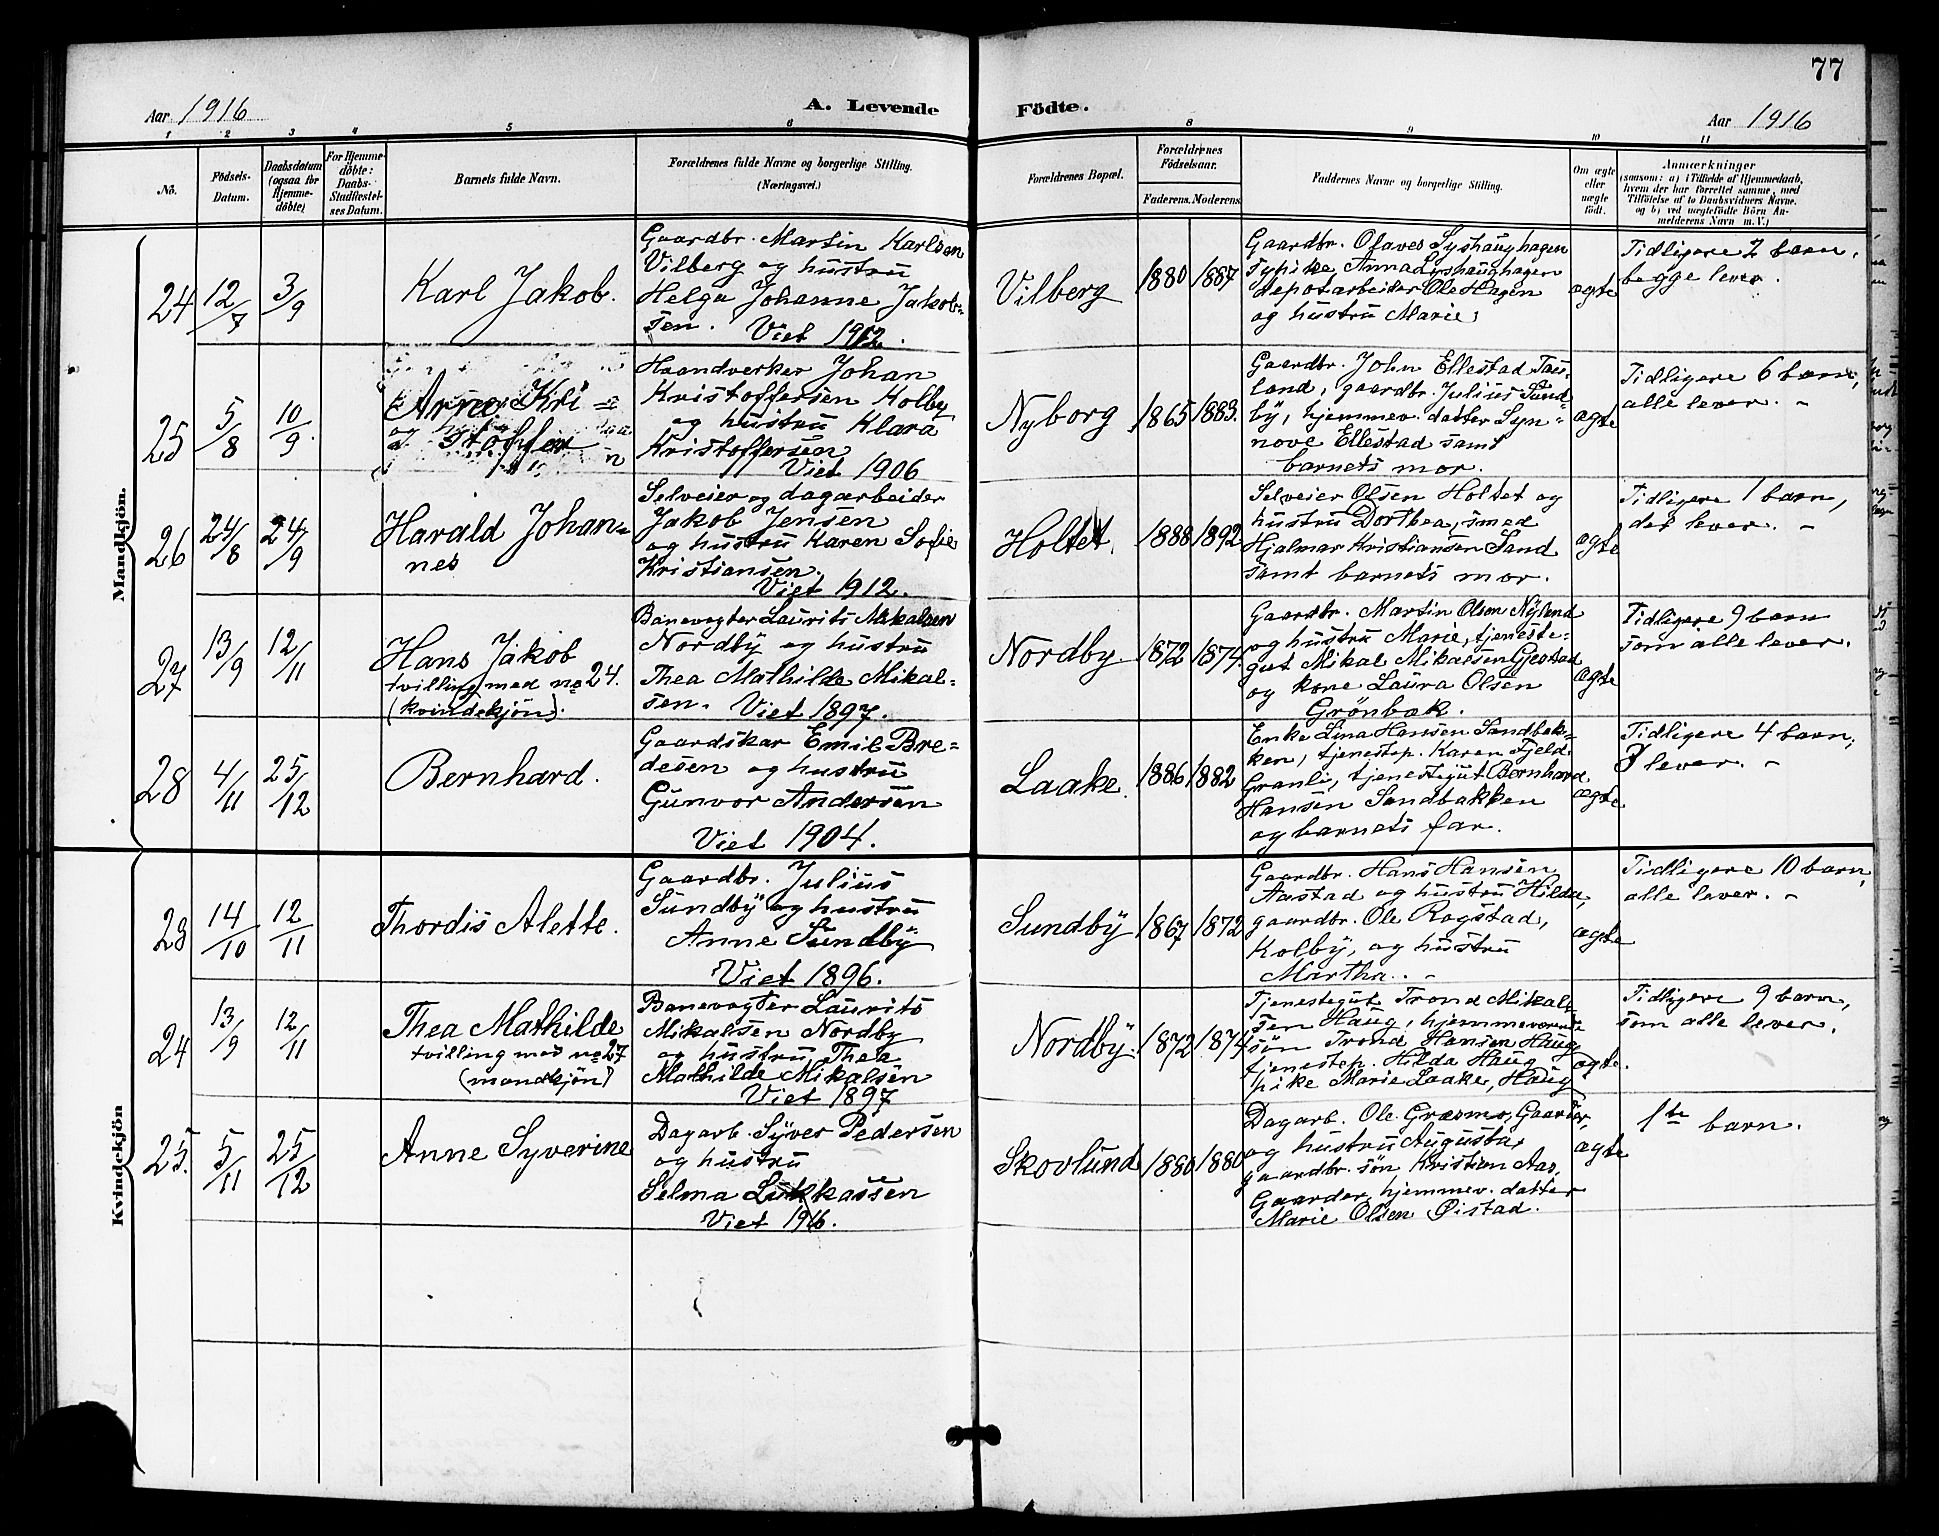 77
Aar 1916
A. Levende
Födte.
Aar 1916
1 2 3 4 5 6 8 9 10 11
Nö.
Födsels-
Datum.
Daabsdatum
(ogsaa for
Hjemme-
döbte)
For Hjemme-
döbte:
Daabs-
Stadfæstel-
ses Datum.
Barnets fulde Navn.
Forældrenes fulde Navne og borgerlige Stilling.
(Næringsvei.)
Forældrenes Bopæl.
Forældrenes
Födselsaar.
Faderens. Moderens.
Faddernes Navne og borgerlige Stilling.
Om ægte
eller
uægte
födt.
Anmærkninger
(saasom: a) i Tilfælde af Hjemmedaab,
hvem der har forrettet samme, med
Tilföielse af to Daabsvidners Navne.
og b) ved uægtefödte Börn An-
melderens Navn m. V.)
Mandkjön.
24
12/7
3/9
Karl Jakob.
Gaardbr. Martin Karlsen
Vilberg og hustru
Helga Johanne Jakob=
sen. Viet 1912.
Vilberg
1880 1887
Gaardbr. Olaves Syshaughagen
pike Anna Lyshaughagen
depotarbeider Ole Hagen
og hustru Marie
ægte
Tidligere 2 barn,
begge lever.
25
5/8
10/9.
Arne Kri=
stoffer
Haandverker Johan
Kristoffersen Kolby
og hustru Klara
Kristoffersen
Viet 1906
Nyborg
1865 1883.
Gaardbr. John Ellestad Taus-
land, gaardbr. Julius Sund=
by, hjemmev. datter Syn=
nove Ellestad samt
barnets mor.
ægte
Tidligere 6 barn,
alle lever. -
26
24/8
24/9
Harald Johan=
nes
Selveier og dagarbeider
Jakob Jensen
og hustru Karen Sofie
Kristiansen.
Viet 1912.
Holtet.
1888 1892
Selveier Olsen Holtet og
hustru Dorthea, smed
Hjalmar Kristiansen Sand
samt barnets mor.
ægte
Tidligere 1 barn,
det lever. -
27
13/9
12/11
Hans Jakob
tvilling med no 24.
(kvindekjön).
Banevogter Laurits Mikalsen
Nordby og hustru
Thea Mathilde Mikal=
sen. Viet 1897.
Nordby.
1872 1874.
Gaardbr. Martin Olsen Nylend
og hustru Marie, tjeneste=
gut Mikal Mikalsen Gjestad
og kone Laura Olsen
Grönbæk.
ægte
Tidligere 9 barn
som alle lever.
28
4/11
25/12
Bernhard.
Gaardskar Emil Bre=
desen og hustru
Gunvor Andersen
Viet 1904.
Laake.
1886 1882
Enke Lina Hansen Sandbak=
ken, tjenestep. Karen Fjeld
Granli, tjenestegut Bernhard
Hansen Sandbakken
og barnets far.
ægte
Tidligere 4 barn,
lever. -
Kvindekjön
23
14/10
12/11
Thordis Alette.
Gaardbr. Julius
Sundby og hustru
Anne Sundby
Viet 1896.
Sundby
1867 1872
Gaardbr. Hans Hansen
Aastad og hustru Hilda,
gaardbr. Ole Rogstad,
Kolby, og hustru
Martha. -
ægte
Tidligere 10 barn,
alle lever. -
24
13/9
12/11
Thea Mathilde
tvilling med no 27
(mandkjön)
Banevogter Laurits
Mikalsen Nordby
og hustru Thea
Mathilde Mikalsen
Viet 1897
Nordby.
1872 1874
Tjenestegut Trond Mikal=
sen Haug, hjemmeværende
sön Trond Hansen Haug
tjenestep. Hilda Haug
pike Marie Laake, Haug
ægte.
Tidligere 9 barn,
som alle lever.
25.
5/11
25/12
Anne Syverine
Dagarb. Syver Pedersen
og hustru
Selma Lukkassen
Viet 1916.
Skovlund
1880 1880
Dagarb. Ole Græsmo, Gaarder,
og hustru Augusta,
gaardbr. sön Kristian Aas,
Gaarder, hjemmev. datter
Marie Olsen Øistad.
ægte
1ste barn.